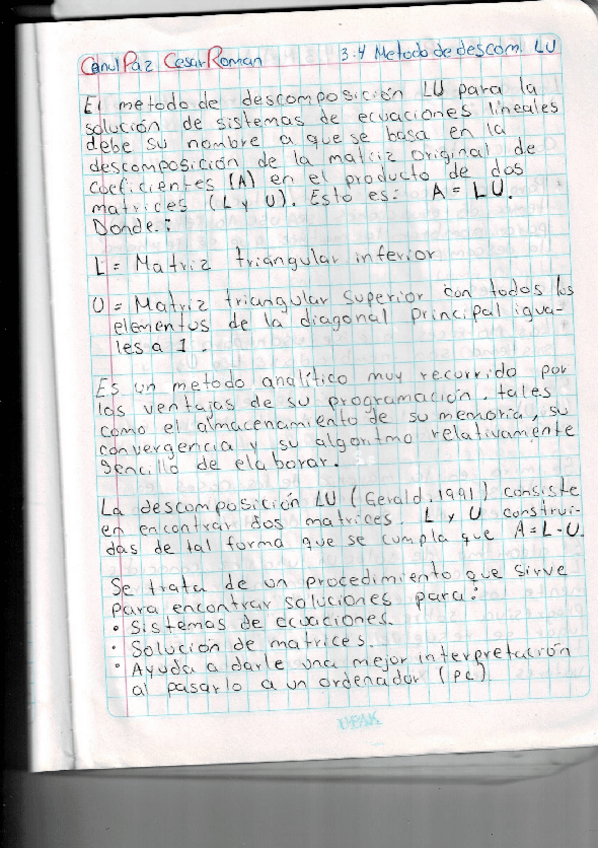 Canul Paz Cesar Roman 3.4 Metodo de descom. LU
El metodo de descomposición LU para la
solución de sistemas de ecuaciones lineales
debe su nombre a que se basa en la
descomposición de la matriz original de
coeficientes (A) en el producto de dos
matrices (L y U). Esto es: A = LU.
Donde.:
L = Matriz triangular inferior
U = Matriz triangular superior con todos los
elementos de la diagonal principal igua-
les a 1.
Es un metodo analítico muy recurrido por
los ventajas de su programación, tales
como el almacenamiento de su memoria, su
convergencia y su algoritmo relativamente
sencillo de elaborar.
La descomposición LU (Gerald, 1991) consiste
en encontrar dos matrices. L y U construi-
das de tal forma que se cumpla que A=L·U.
Se trata de un procedimiento que sirve
para encontrar soluciones para:
• Sistemas de ecuaciones.
• Solución de matrices.
• Ayuda a darle una mejor interpretación
al pasarlo a un ordenador (PC)